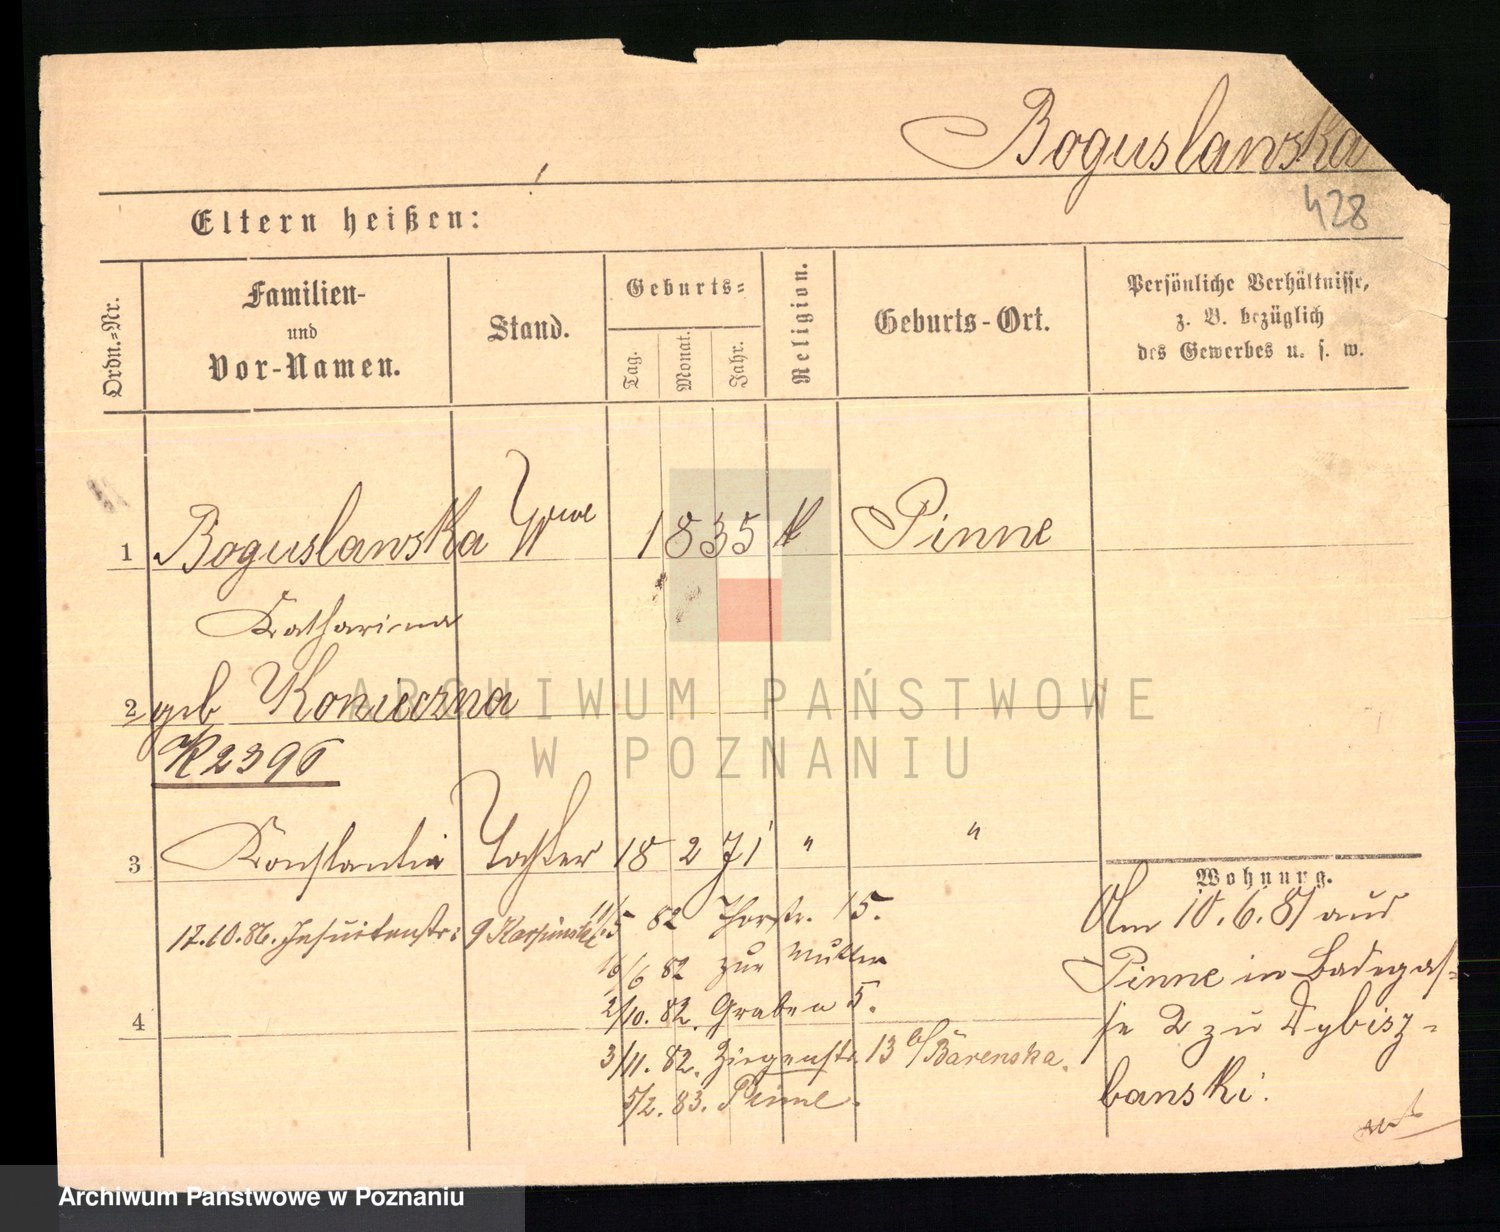 Boguslawska
428
Eltern heißen:
Ordn.-Nr.
Familien-
und
Vor-Namen.
Stand.
Geburts-
Tag.
Monat.
Jahr.
Religion.
Geburts-Ort.
Persönliche Verhältnisse,
z. B. bezüglich
des Gewerbes u. s. w.
1 Boguslawska Wwe 1835 k Pinne
Katharina
2 geb Konieczna
K2396
3 Konstantia Tochter 18 2 71 " "
Wohnung.
Am 10.6.81 aus
Pinne in Badegas-
se 2 zu Dybisz-
banski.
17.10.86. Jesuitenstr: 9 Karpinski
11/5 82 Thorstr. 15.
16/6 82 zur Mutter
2/10. 82. Graben 5.
4
3/11. 82. Ziegenstr. 13 b/ Bärenska.
5/2. 83. Pinne.
ARCHIWUM PAŃSTWOWE
W POZNANIU
Archiwum Państwowe w Poznaniu